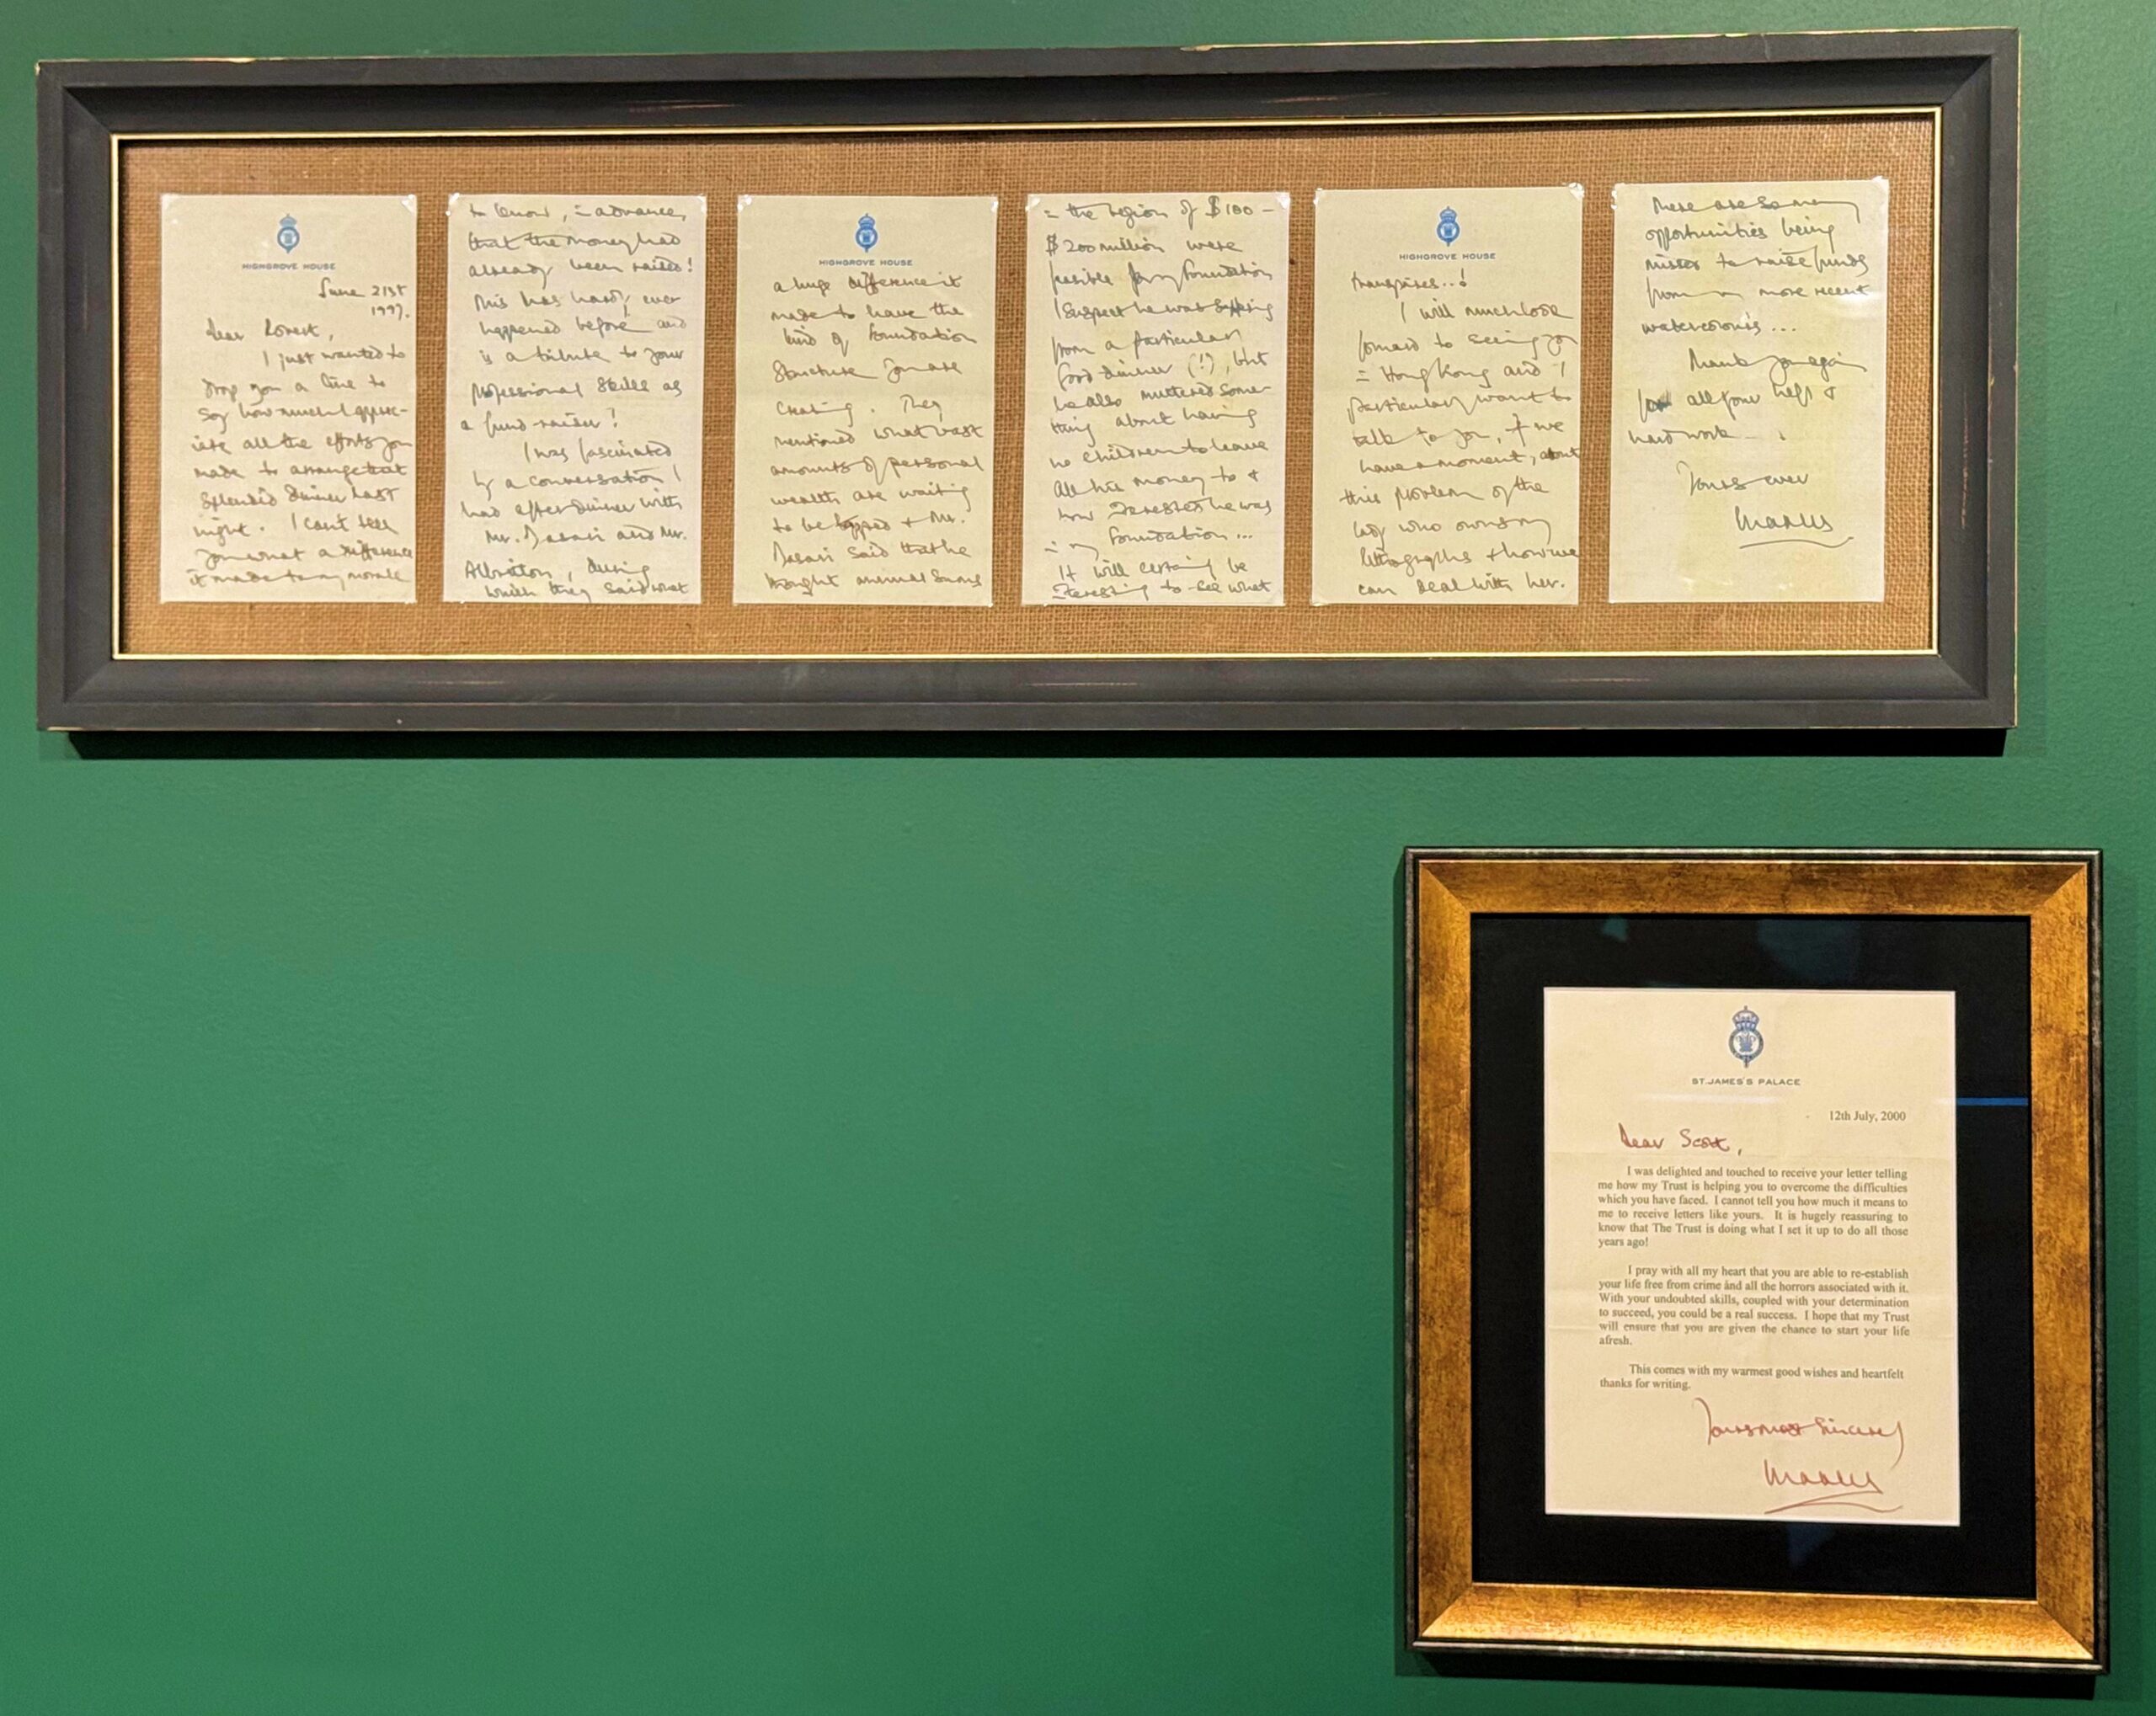 HIGHGROVE HOUSE
June 21st
1997.
Dear Robert,
I just wanted to
drop you a line to
say how much I apprec-
iate all the efforts you
made to arrange that
splendid dinner last
night. I can't tell
you what a difference
it made to my morale
to know, in advance,
that the money had
already been raised!
This has hardly ever
happened before and
is a tribute to your
professional skills as
a fund-raiser!
I was fascinated
by a conversation I
had after dinner with
Mr. and Mr.
Allbritton, during
which they said what
HIGHGROVE HOUSE
a huge difference it
made to have the
kind of Foundation
structure you are
creating. They
mentioned what vast
amounts of personal
wealth are waiting
to be tapped & Mr.
said that he
thought annual sums
in the region of $100-
$200 million were
possible for my Foundation
I suspect he was suffering
from a particularly
good dinner (!), but
he also muttered some-
thing about having
no children to leave
all his money to &
how interested he was
in my Foundation...
It will certainly be
interesting to see what
HIGHGROVE HOUSE
transpires..!
I will much look
forward to seeing you
in Hong Kong and I
particularly want to
talk to you, if we
have a moment, about
this problem of the
lady who owns my
lithographs & how we
can deal with her.
There are so many
opportunities being
missed to raise funds
from my more recent
watercolours...
Thank you again
for all your help &
hard work
Yours ever
Charles
ST. JAMES'S PALACE
12th July, 2000
Dear Scott,
I was delighted and touched to receive your letter telling
me how my Trust is helping you to overcome the difficulties
which you have faced. I cannot tell you how much it means to
me to receive letters like yours. It is hugely reassuring to
know that The Trust is doing what I set it up to do all those
years ago!
I pray with all my heart that you are able to re-establish
your life free from crime and all the horrors associated with it.
With your undoubted skills, coupled with your determination
to succeed, you could be a real success. I hope that my Trust
will ensure that you are given the chance to start your life
afresh.
This comes with my warmest good wishes and heartfelt
thanks for writing.
Yours most sincerely
Charles